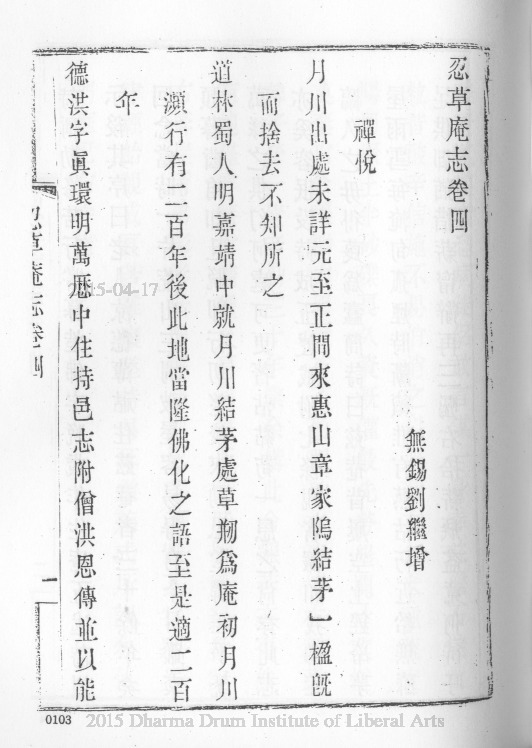 忍草庵志卷四
無錫劉繼增
禪悅
月川出處未詳元至正間來惠山章家隖結茅一楹旣
而捨去不知所之
道林蜀人明嘉靖中就月川結茅處草剏爲庵初月川
瀕行有二百年後此地當隆佛化之語至是適二百
年
德洪字眞環明萬厯中住持邑志附僧洪恩傳並以能
忍草庵志卷四
一
2015-04-17
0103
2015 Dharma Drum Institute of Liberal Arts